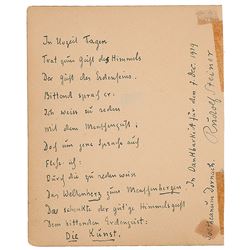 In Urzeit Tagen
Trat zum Geist des Himmels
Der Geist des Erdenseins.
Bittend sprach er:
Ich weiss zu reden
Mit dem Menschengeist;
Doch um jene Sprache auch
Flehe ich:
Durch die zu reden weiss
Das Weltenherz zum Menschenherzen
Da schenkte der gütige Himmelsgeist
Dem bittenden Erdengeist:
Die Kunst.
In Dankbarkeit für den 7. Dez. 1919
Rudolf Steiner
Goetheanum Dornach